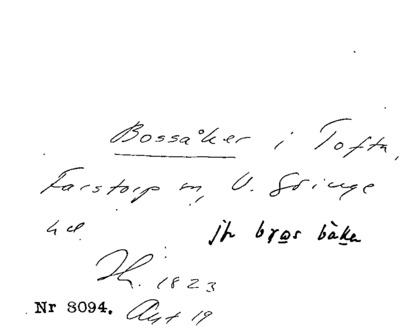 Bossåker i Tofta,
Farstorp sn, V. Göinge
hd. jfr bros båka
Jh. 1823
Nr 8094. Avs 19